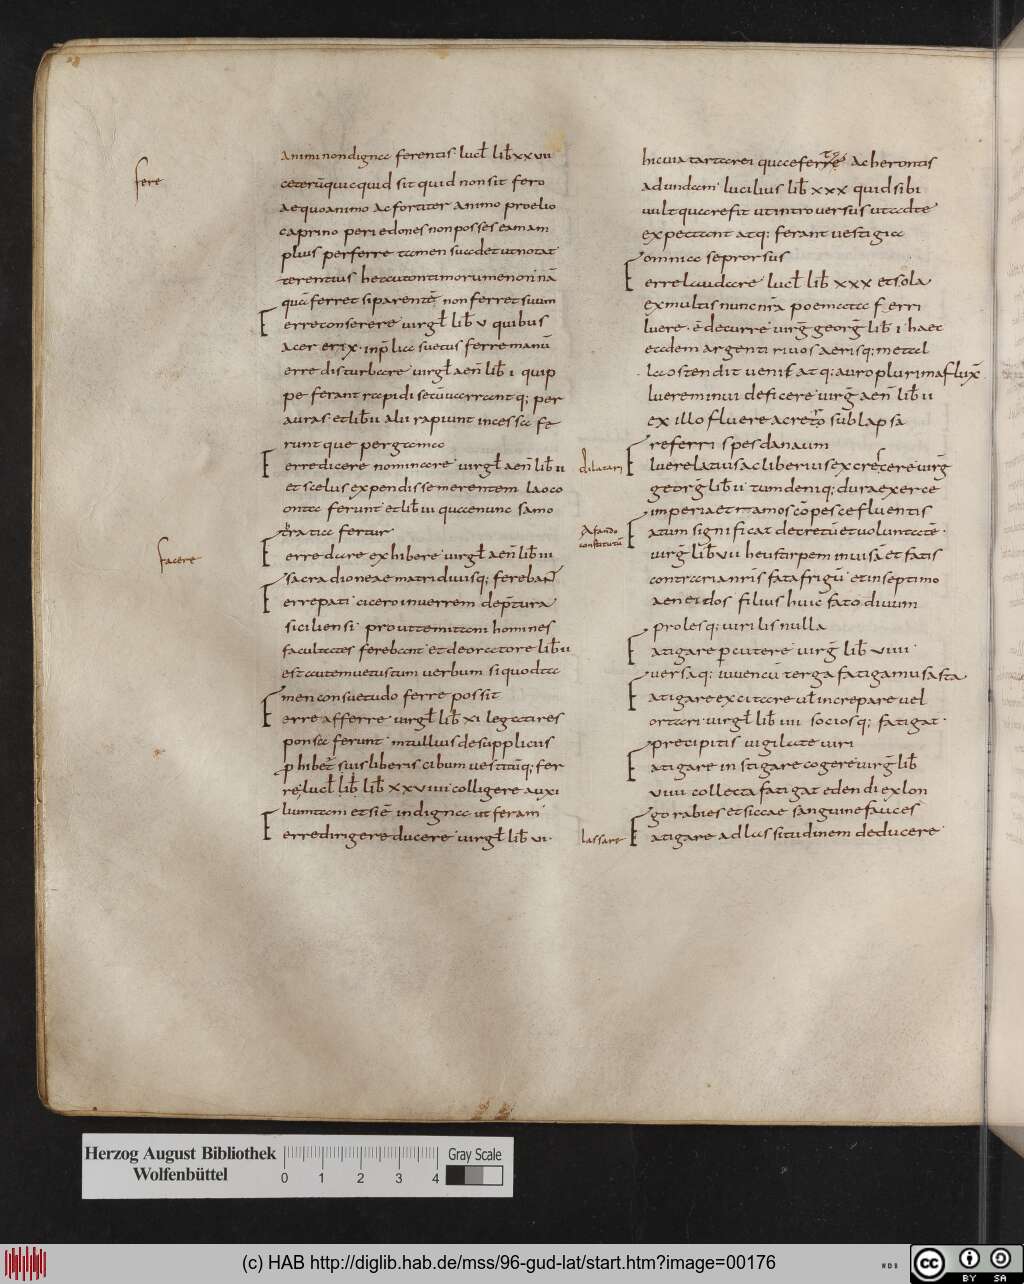 fere
facere
animi non digna ferentis lucł lib̄ xxvii
ceterū quicquid sit quid non sit fero
aequo animo ac fortiter animo proelio
caprino periedones non posses eam am
plius perferre tamen suadet ut notat
terentius heautontimorumenon nā
quā ferret si parentē non ferret suum
Ferre conserere virgł lib̄ v quibus
acer erix in p̄lia suetus ferre manū
Ferre disturbare virgł aen̄ lib̄ i quip
pe ferant rapidi secū verrantq; per
auras et lib̄ ii alii rapiunt incessa fe
runt que pergama
Ferre dicere nominare virgł aen̄ lib̄ ii
et scelus expendisse merentem laoco
onta ferunt et lib̄ iii quae nunc samo
tratia fertur
Ferre dare exhibere virgł aen̄ lib̄ iii
sacra dioneae matri divisq; ferebant
Ferre pati cicero in verrem de p̄tura
siciliensi prout temitani homines
facultates ferebant et de oratore lib̄ ii
est autem vetustum verbum si quod ta
men consuetudo ferre possit
Ferre afferre virgł lib̄ xi legati res
ponsa ferunt m tullius de suppliciis
p hibet̄ suis liberis cibum vestitūq; fer
re lucł lib̄ lib̄ xxviiii colligere auxi
lium tam etsi ē indigna ut feram
Ferre dirigere ducere virgł lib̄ vi
hic via tartarei quae ferre acherontis
ad undam lucilius lib̄ xxx quid sibi
vult quare fit ut intro versus ut ad te
expectant atq; ferant vestigia
omnia se prorsus
Ferre laudare lucł lib̄ xxx et sola
ex multis nunc nr̄a poemata ferri
Fluere ē decurre virḡ georḡ lib̄ i haec
eadem argenti rivos aerisq; metal
la ostendit venis atq; auro plurima flux̄
Fluere minui deficere virḡ aen̄ lib̄ ii
ex illo fluere ac retro sub lapsa
referri spes danaum
dilatari
Fluere latius ac liberius excrescere virḡ
georḡ lib̄ ii tum deniq; dura exerce
imperia et ramos cōpesce fluentis
A fando
constitutū
Fatum significat decretū et voluntatē
virḡ lib̄ vii heu stirpem invisā et fatis
contraria nr̄is fata frigū et in septimo
aeneidos filius huic fato divum
prolesq; virilis nulla
Fatigare p cutere virḡ lib̄ viiii
versaq; iuvencū terga fatigamus asta
Fatigare excitare uł increpare vel
ortari virgł lib̄ iiii sociosq; fatigat
precipitis vigilate viri
Fatigare instigare cogere virḡ lib̄
viiii collecta fatigat edendi ex lon
go rabies et siccae sanguine fauces
lassare
Fatigare ad lassitudinem deducere
Herzog August Bibliothek
Wolfenbüttel
0 1 2 3 4
Gray Scale
(c) HAB http://diglib.hab.de/mss/96-gud-lat/start.htm?image=00176
WDB
cc BY SA